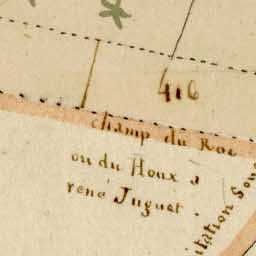 416
champ du Roc
ou du Houx a
rené Juguet.
itation Sous